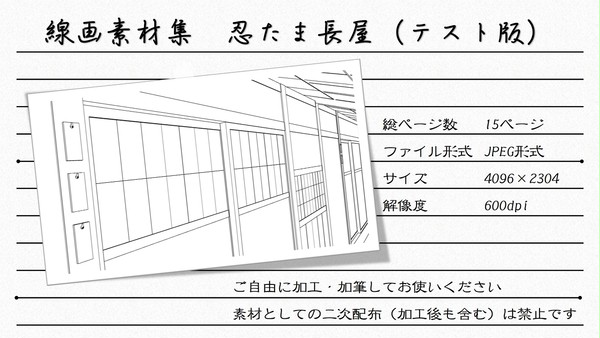 線画素材集　忍たま長屋（テスト版）
総ページ数　15ページ
ファイル形式　JPEG形式
サイズ　4096×2304
解像度　600dpi
ご自由に加工・加筆してお使いください
素材としての二次配布（加工後も含む）は禁止です